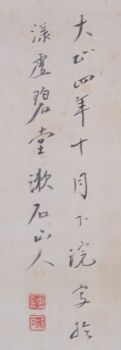 大正四年十月下浣寫於
漾虚碧堂漱石山人